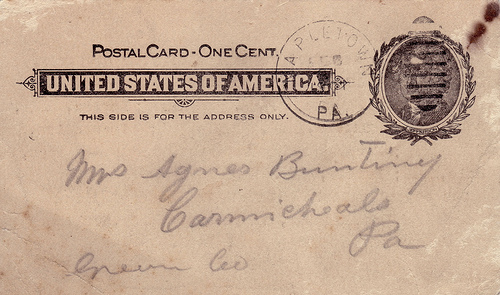 POSTAL CARD - ONE CENT.
UNITED STATES OF AMERICA.
THIS SIDE IS FOR THE ADDRESS ONLY.
PA.
Mrs Agnes Bunting
Carmicheals
Pa
Green Co